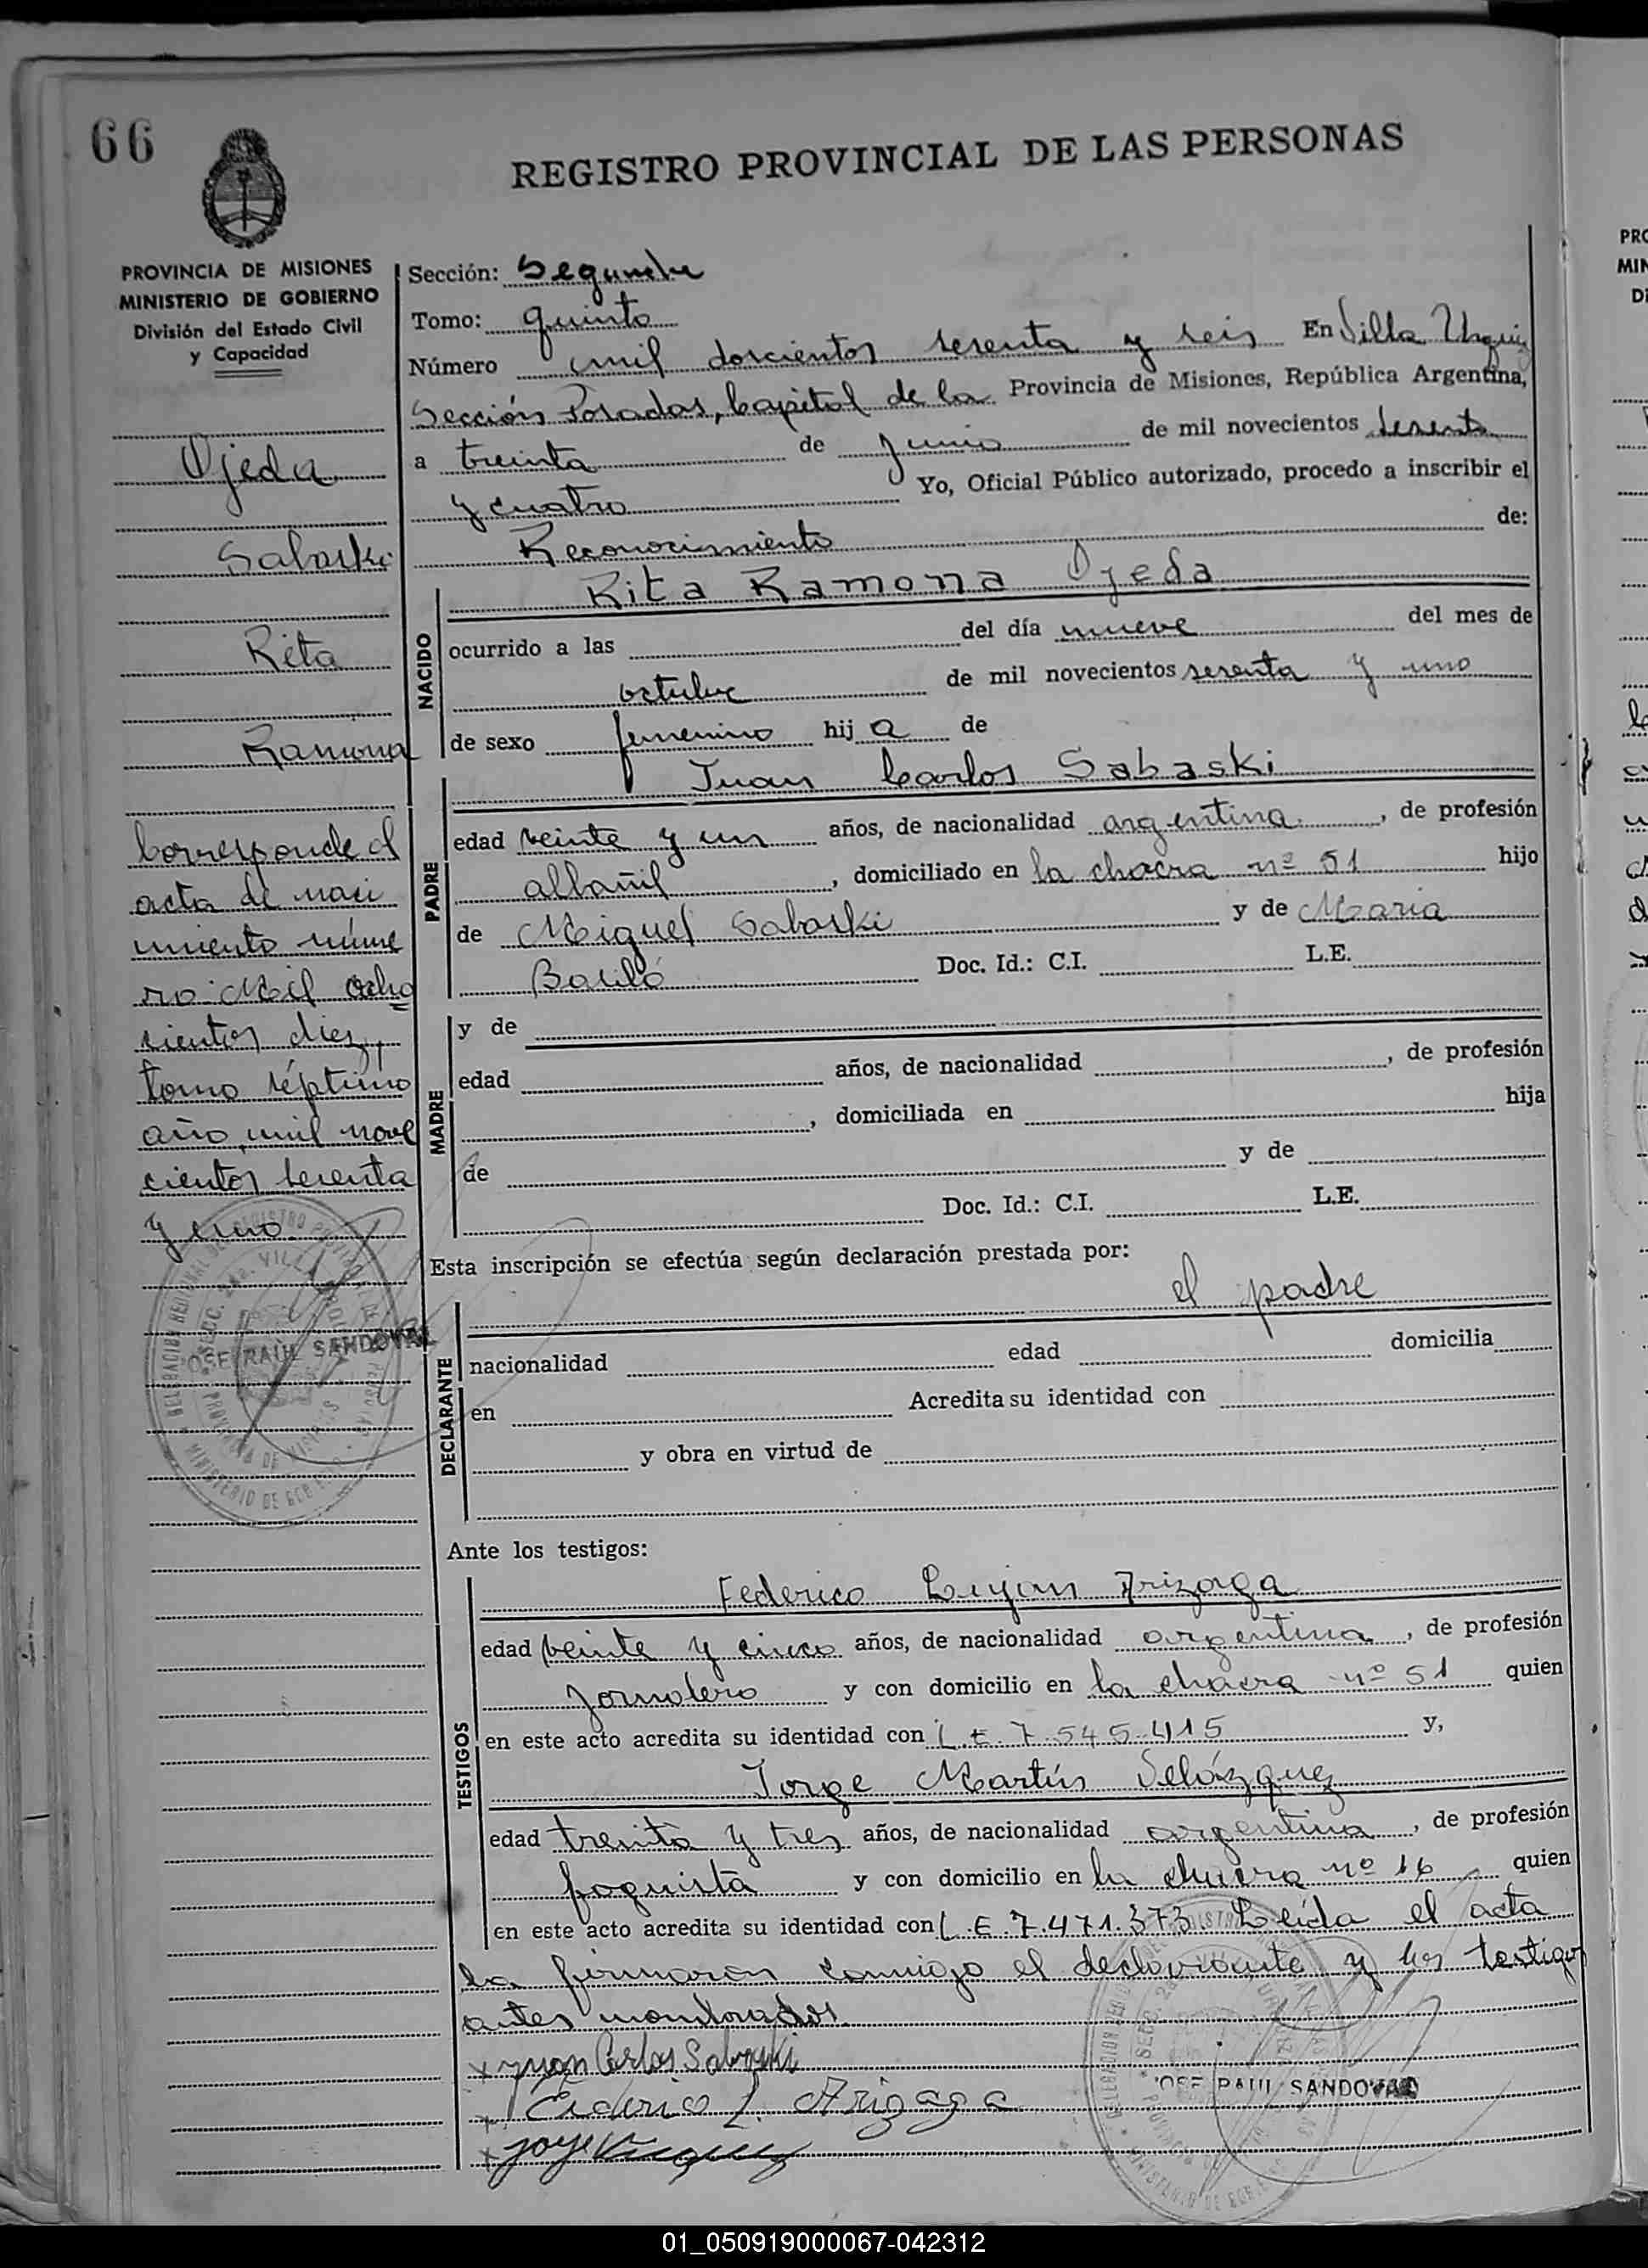 66
REGISTRO PROVINCIAL DE LAS PERSONAS
PROVINCIA DE MISIONES
MINISTERIO DE GOBIERNO
División del Estado Civil
y Capacidad
Ojeda
Sabaski
Rita
Ramona
Corresponde al
acta de naci
miento núme
ro Mil ocho
cientos diez,
tomo séptimo
año mil nove
cientos sesenta
y uno.
JOSE RAUL SANDOVAL
Sección: Segunda
Tomo: quinto
Número mil doscientos sesenta y seis En Villa Urquiz
Sección Posadas, Capital de la Provincia de Misiones, República Argentina,
a treinta de Junio de mil novecientos sesenta
y cuatro Yo, Oficial Público autorizado, procedo a inscribir el
Reconocimiento de:
NACIDO
Rita Ramona Ojeda
ocurrido a las del día nueve del mes de
octubre de mil novecientos sesenta y uno
de sexo femenino hij a de
PADRE
Juan Carlos Sabaski
edad veinte y un años, de nacionalidad argentina, de profesión
albañil, domiciliado en la chacra nº 51 hijo
de Miguel Sabaski y de María
Doc. Id.: C.I. L.E.
MADRE
y de
edad años, de nacionalidad , de profesión
, domiciliada en hija
de y de
Doc. Id.: C.I. L.E.
Esta inscripción se efectúa según declaración prestada por:
el padre
DECLARANTE
nacionalidad edad domicilia
en Acredita su identidad con
y obra en virtud de
Ante los testigos:
TESTIGOS
Federico Lujan Arizaga
edad veinte y cinco años, de nacionalidad argentina, de profesión
Jornalero y con domicilio en la chacra nº 51 quien
en este acto acredita su identidad con L.E. 7.545.415 y,
Jorge Martín Velázquez
edad treinta y tres años, de nacionalidad argentina, de profesión
foguista y con domicilio en la chacra nº 16 quien
en este acto acredita su identidad con L.E 7.471.373 Leída el acta
la firmaron conmigo el declarante y los testigos
antes nombrados.
x Juan Carlos Sabaski
x Federico L. Arizaga
JOSE RAUL SANDOVAL
01_050919000067-042312